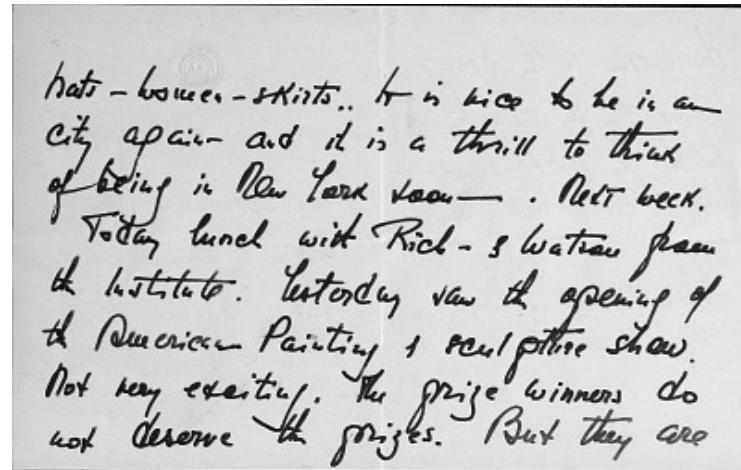 hats - women - skirts.. It is nice to be in an
city again - and it is a thrill to think
of being in New York soon — . Next week.
Today lunch with Rich - & Watson from
the Institute. Yesterday saw the opening of
the American Painting & sculpture show.
Not very exciting. The prize winners do
not deserve the prizes. But they are